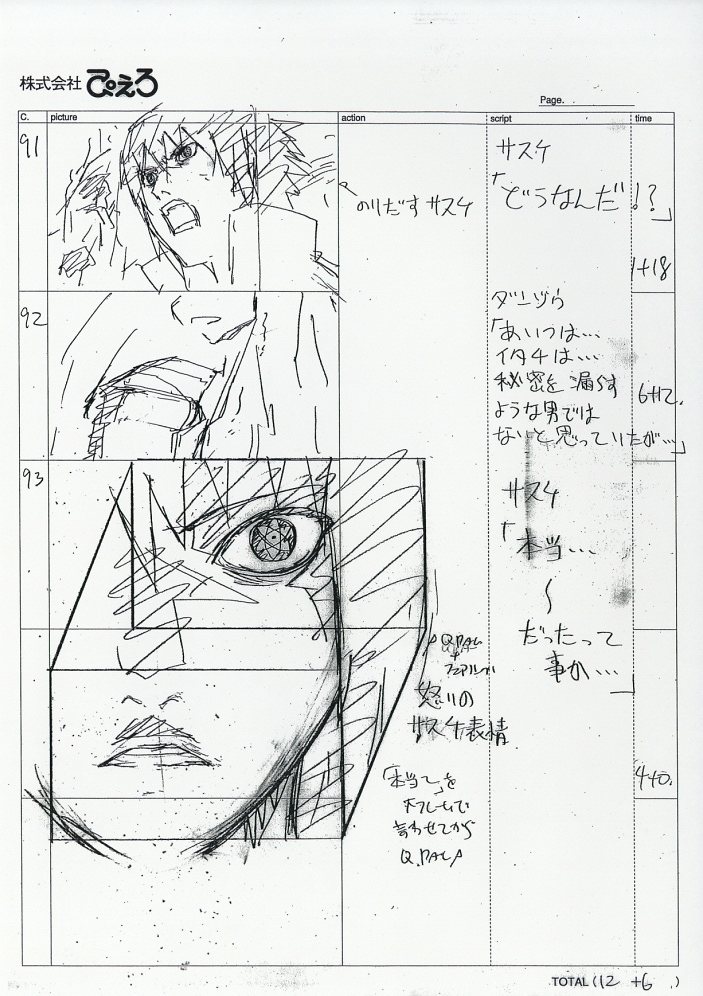 株式会社 ぴえろ
Page.
C. picture action script time
91
のりだす サスケ
サスケ
「どうなんだ!?」
1+18
92
ダンゾウ
「あいつは…
イタチは…
秘密を漏らす
ような男では
ないと思っていたが…」
6+12.
93
サスケ
「本当…
〜
だったって
事か…」
Q.PAN
怒りの
サスケ表情
「本当」を
フレームで
言わせてから
Q.PAN
TOTAL (12 +6 )